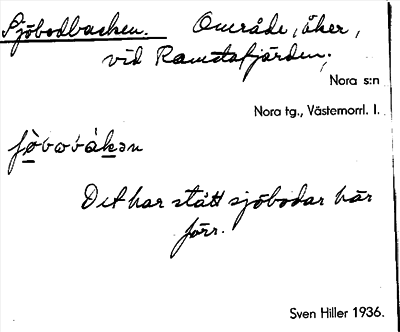 Sjöbodbacken. Område, åker,
vid Ramstafjärden,
Nora s:n
Nora tg., Västernorrl. l.
Det har stått sjöbodar här
förr.
Sven Hiller 1936.